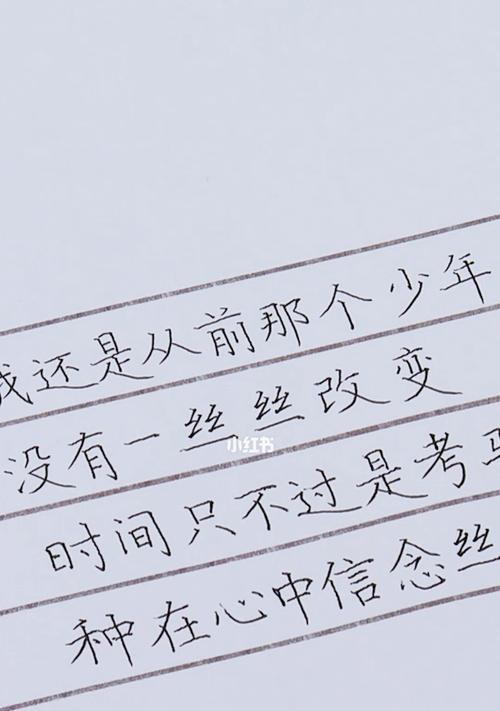 我还是从前那个少年
没有一丝丝改变
小红书
时间只不过是考
种在心中信念丝